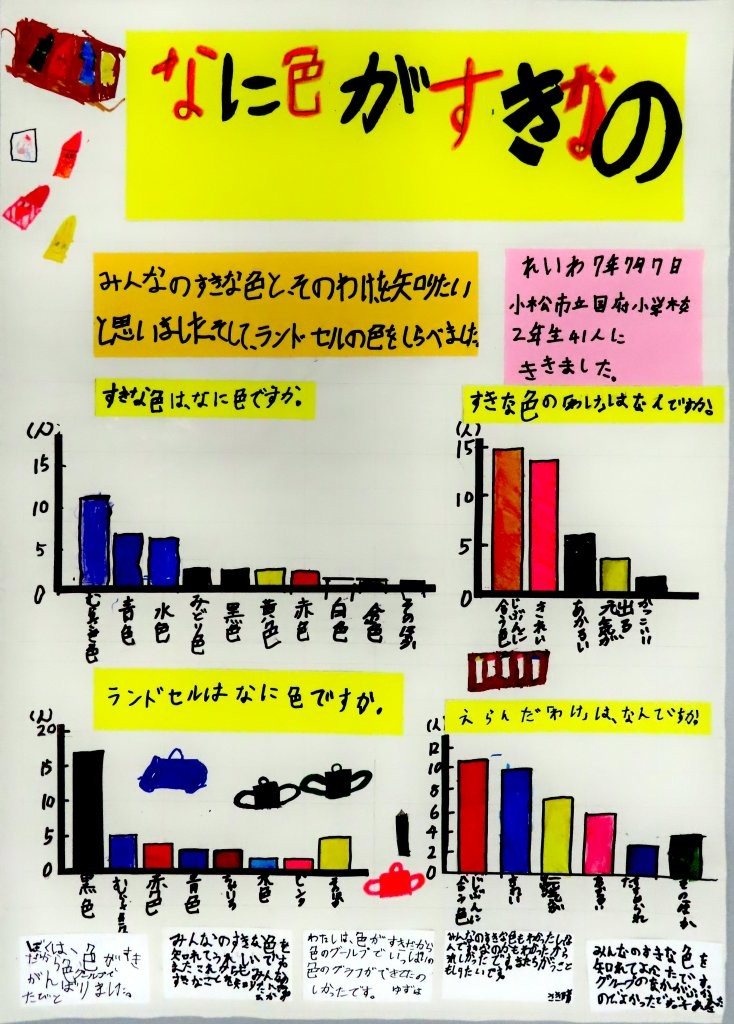 なに色がすきなの
みんなのすきな色と、そのわけを知りたい
と思いました。そして、ランドセルの色をしらべました。
れいわ7年7月7日
小松市立国府小学校
2年生41人に
ききました。
すきな色は、なに色ですか。
(人)
15
10
5
0
むらさき色
青色
水色
みどり色
黒色
黄色
赤色
白色
金色
そのほか
すきな色の「わけ」はなんですか。
(人)
15
10
5
0
じぶんに合う色
きれい
あかるい
元気が出る
かっこいい
ランドセルは なに色ですか。
(人)
20
15
10
5
0
黒色
むらさき色
赤色
青色
ちゃいろ
水色
ピンク
えらんだ「わけ」は、なんですか。
(人)
12
10
8
6
4
2
0
じぶんに合う色
きれい
そのほか
ぼくは、色がすき
だから色グループで
がんばりました。
たびと
みんなのすきな色を
知れてうれしいです。
またこれからもみんなの
すきなことを知りたい
わたしは、色がすきだから
色のグループで いっぱいの
色のグラフができてたの
しかったです。 ゆずは
みんなのすきな色もわかったし、な
れしかったです。またちがうこと
もしりたいです。
みんなのすきな色を
知れてよかったです。
グループのなかがいい
のでよかったです。